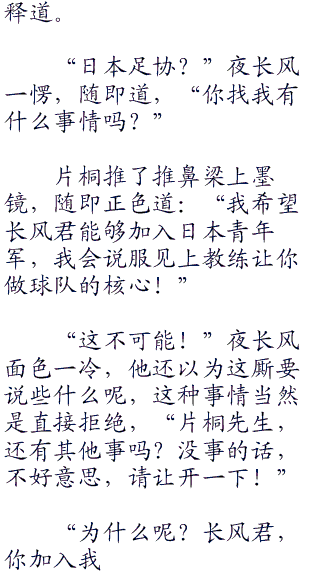 释道。
“日本足协？”夜长风
一愣，随即道，“你找我有
什么事情吗？”
片桐推了推鼻梁上墨
镜，随即正色道：“我希望
长风君能够加入日本青年
军，我会说服见上教练让你
做球队的核心！”
“这不可能！”夜长风
面色一冷，他还以为这厮要
说些什么呢，这种事情当然
是直接拒绝，“片桐先生，
还有其他事吗？没事的话，
不好意思，请让开一下！”
“为什么呢？长风君，
你加入我